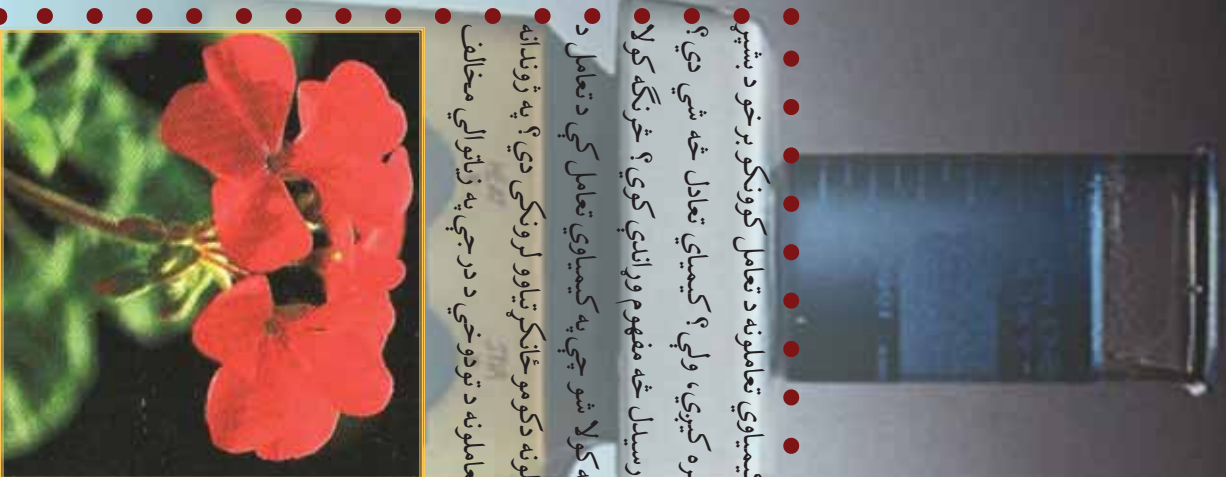 یمیاوي تعاملونه د تعامل کوونکو برخو د بشپړ
ره کیږي، ولې؟ کیمیاي تعادل څه شي دي؟
رسیدل څه مفهوم وړاندې کوي؟ څرنګه کولا
کولا شو چې په کیمیاوي تعامل کې د تعامل د
لونه د کومو ځانګړتیاوو لرونکي دي؟ په ژوندانه
عاملونه د تودوخې د درجې په زیاتوالي مخالف